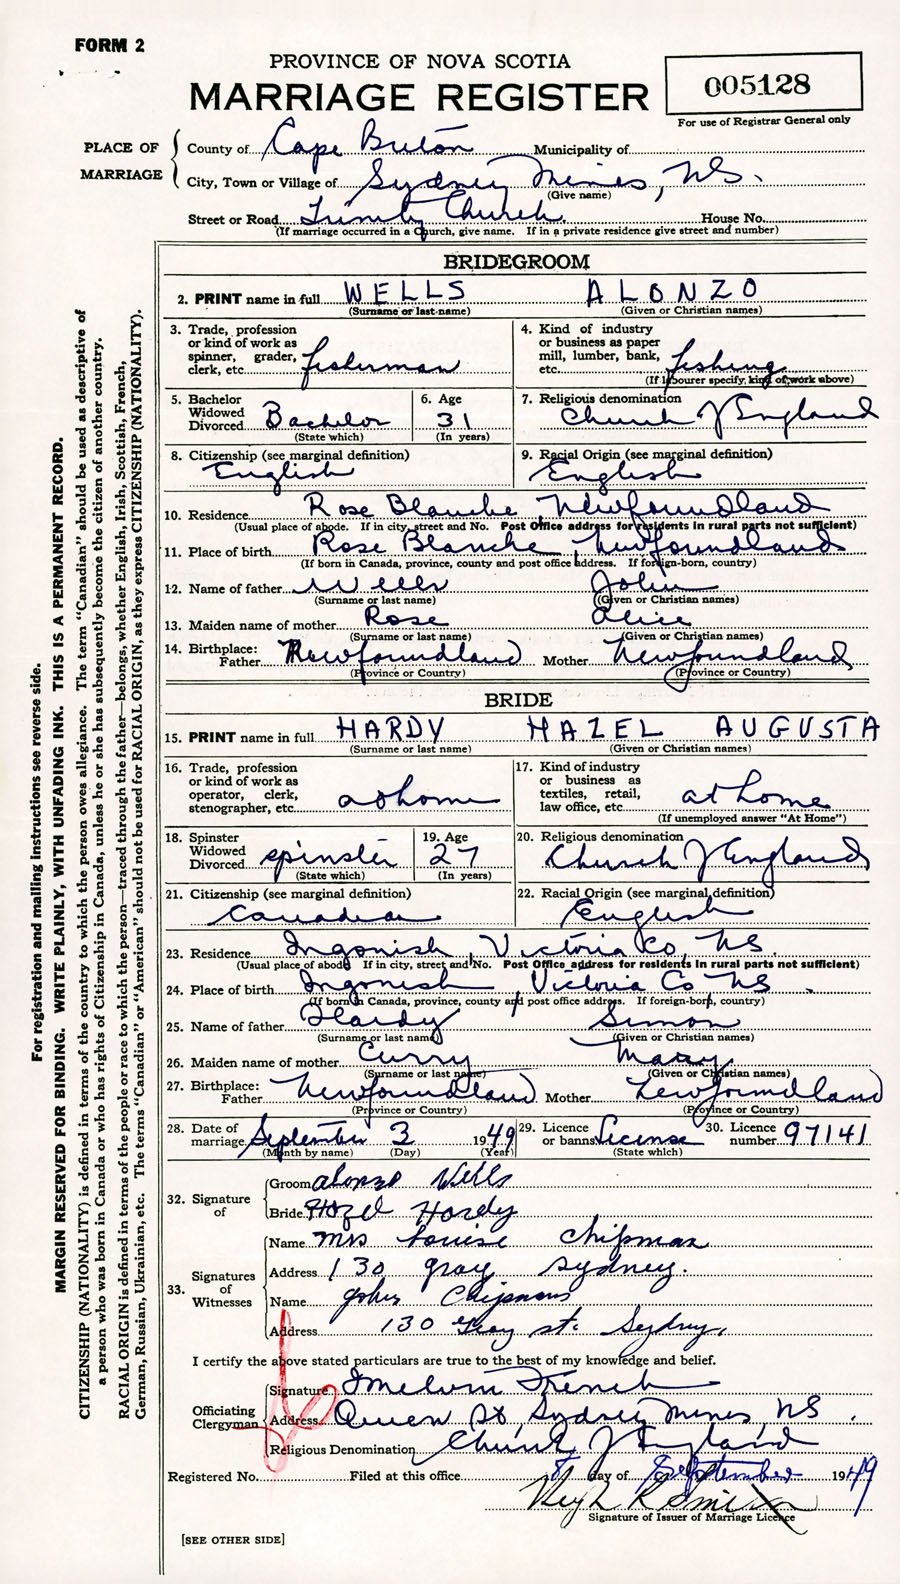 FORM 2
PROVINCE OF NOVA SCOTIA
MARRIAGE REGISTER
005128
For use of Registrar General only
PLACE OF MARRIAGE
County of Cape Breton Municipality of
City, Town or Village of Sydney Mines, NS.
(Give name)
Street or Road Trinity Church House No.
(If marriage occurred in a Church, give name. If in a private residence give street and number)
BRIDEGROOM
2. PRINT name in full WELLS ALONZO
(Surname or last name) (Given or Christian names)
3. Trade, profession or kind of work as spinner, grader, clerk, etc. fisherman
4. Kind of industry or business as paper mill, lumber, bank, etc. fishing
(If labourer specify, kind of work above)
5. Bachelor Widowed Divorced Bachelor
(State which)
6. Age 31
(In years)
7. Religious denomination
Church of England
8. Citizenship (see marginal definition)
English
9. Racial Origin (see marginal definition)
English
10. Residence Rose Blanche, Newfoundland
(Usual place of abode. If in city, street and No. Post Office address for residents in rural parts not sufficient)
11. Place of birth Rose Blanche, Newfoundland
(If born in Canada, province, county and post office address. If foreign-born, country)
12. Name of father Wells John
(Surname or last name) (Given or Christian names)
13. Maiden name of mother Rose Alice
(Surname or last name) (Given or Christian names)
14. Birthplace: Father Newfoundland Mother Newfoundland
(Province or Country) (Province or Country)
BRIDE
15. PRINT name in full HARDY HAZEL AUGUSTA
(Surname or last name) (Given or Christian names)
16. Trade, profession or kind of work as operator, clerk, stenographer, etc. at home
17. Kind of industry or business as textiles, retail, law office, etc. at home
(If unemployed answer "At Home")
18. Spinster Widowed Divorced spinster
(State which)
19. Age 27
(In years)
20. Religious denomination
Church of England
21. Citizenship (see marginal definition)
Canadian
22. Racial Origin (see marginal definition)
English
23. Residence Ingonish, Victoria Co, NS.
(Usual place of abode If in city, street and No. Post Office address for residents in rural parts not sufficient)
24. Place of birth Ingonish, Victoria Co NS.
(If born in Canada, province, county and post office address. If foreign-born, country)
25. Name of father Hardy Simon
(Surname or last name) (Given or Christian names)
26. Maiden name of mother Curry Mary
(Surname or last name) (Given or Christian names)
27. Birthplace: Father Newfoundland Mother Newfoundland
(Province or Country) (Province or Country)
28. Date of marriage September 3 1949
(Month by name) (Day) (Year)
29. Licence or banns License
(State which)
30. Licence number 97141
32. Signature of
Groom Alonzo Wells
Bride Hazel Hardy
33. Signatures of Witnesses
Name Mrs Louise Chipman
Address 130 Gray Sydney.
Name John Chipman
Address 130 Gray st. Sydney,
I certify the above stated particulars are true to the best of my knowledge and belief.
Officiating Clergyman
Signature Melvin French
Address Queen St Sydney Mines, NS.
Religious Denomination Church of England
Registered No. Filed at this office 8 day of September 1949
Hugh R
Signature of Issuer of Marriage Licence
[SEE OTHER SIDE]
For registration and mailing instructions see reverse side.
MARGIN RESERVED FOR BINDING. WRITE PLAINLY, WITH UNFADING INK. THIS IS A PERMANENT RECORD.
CITIZENSHIP (NATIONALITY) is defined in terms of the country to which the person owes allegiance. The term "Canadian" should be used as descriptive of
a person who was born in Canada or who has rights of Citizenship in Canada, unless he or she has subsequently become the citizen of another country.
RACIAL ORIGIN is defined in terms of the people or race to which the person—traced through the father—belongs, whether English, Irish, Scottish, French,
German, Russian, Ukrainian, etc. The terms "Canadian" or "American" should not be used for RACIAL ORIGIN, as they express CITIZENSHIP (NATIONALITY).